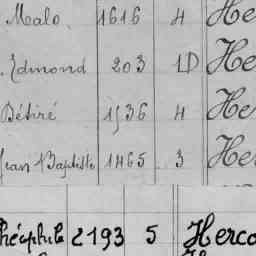 Malo 1616 4 He
Edmond 203 1D He
Désiré 1536 4 He
Jean Baptiste 1465 3 Her
Théophile 2193 5 Herco